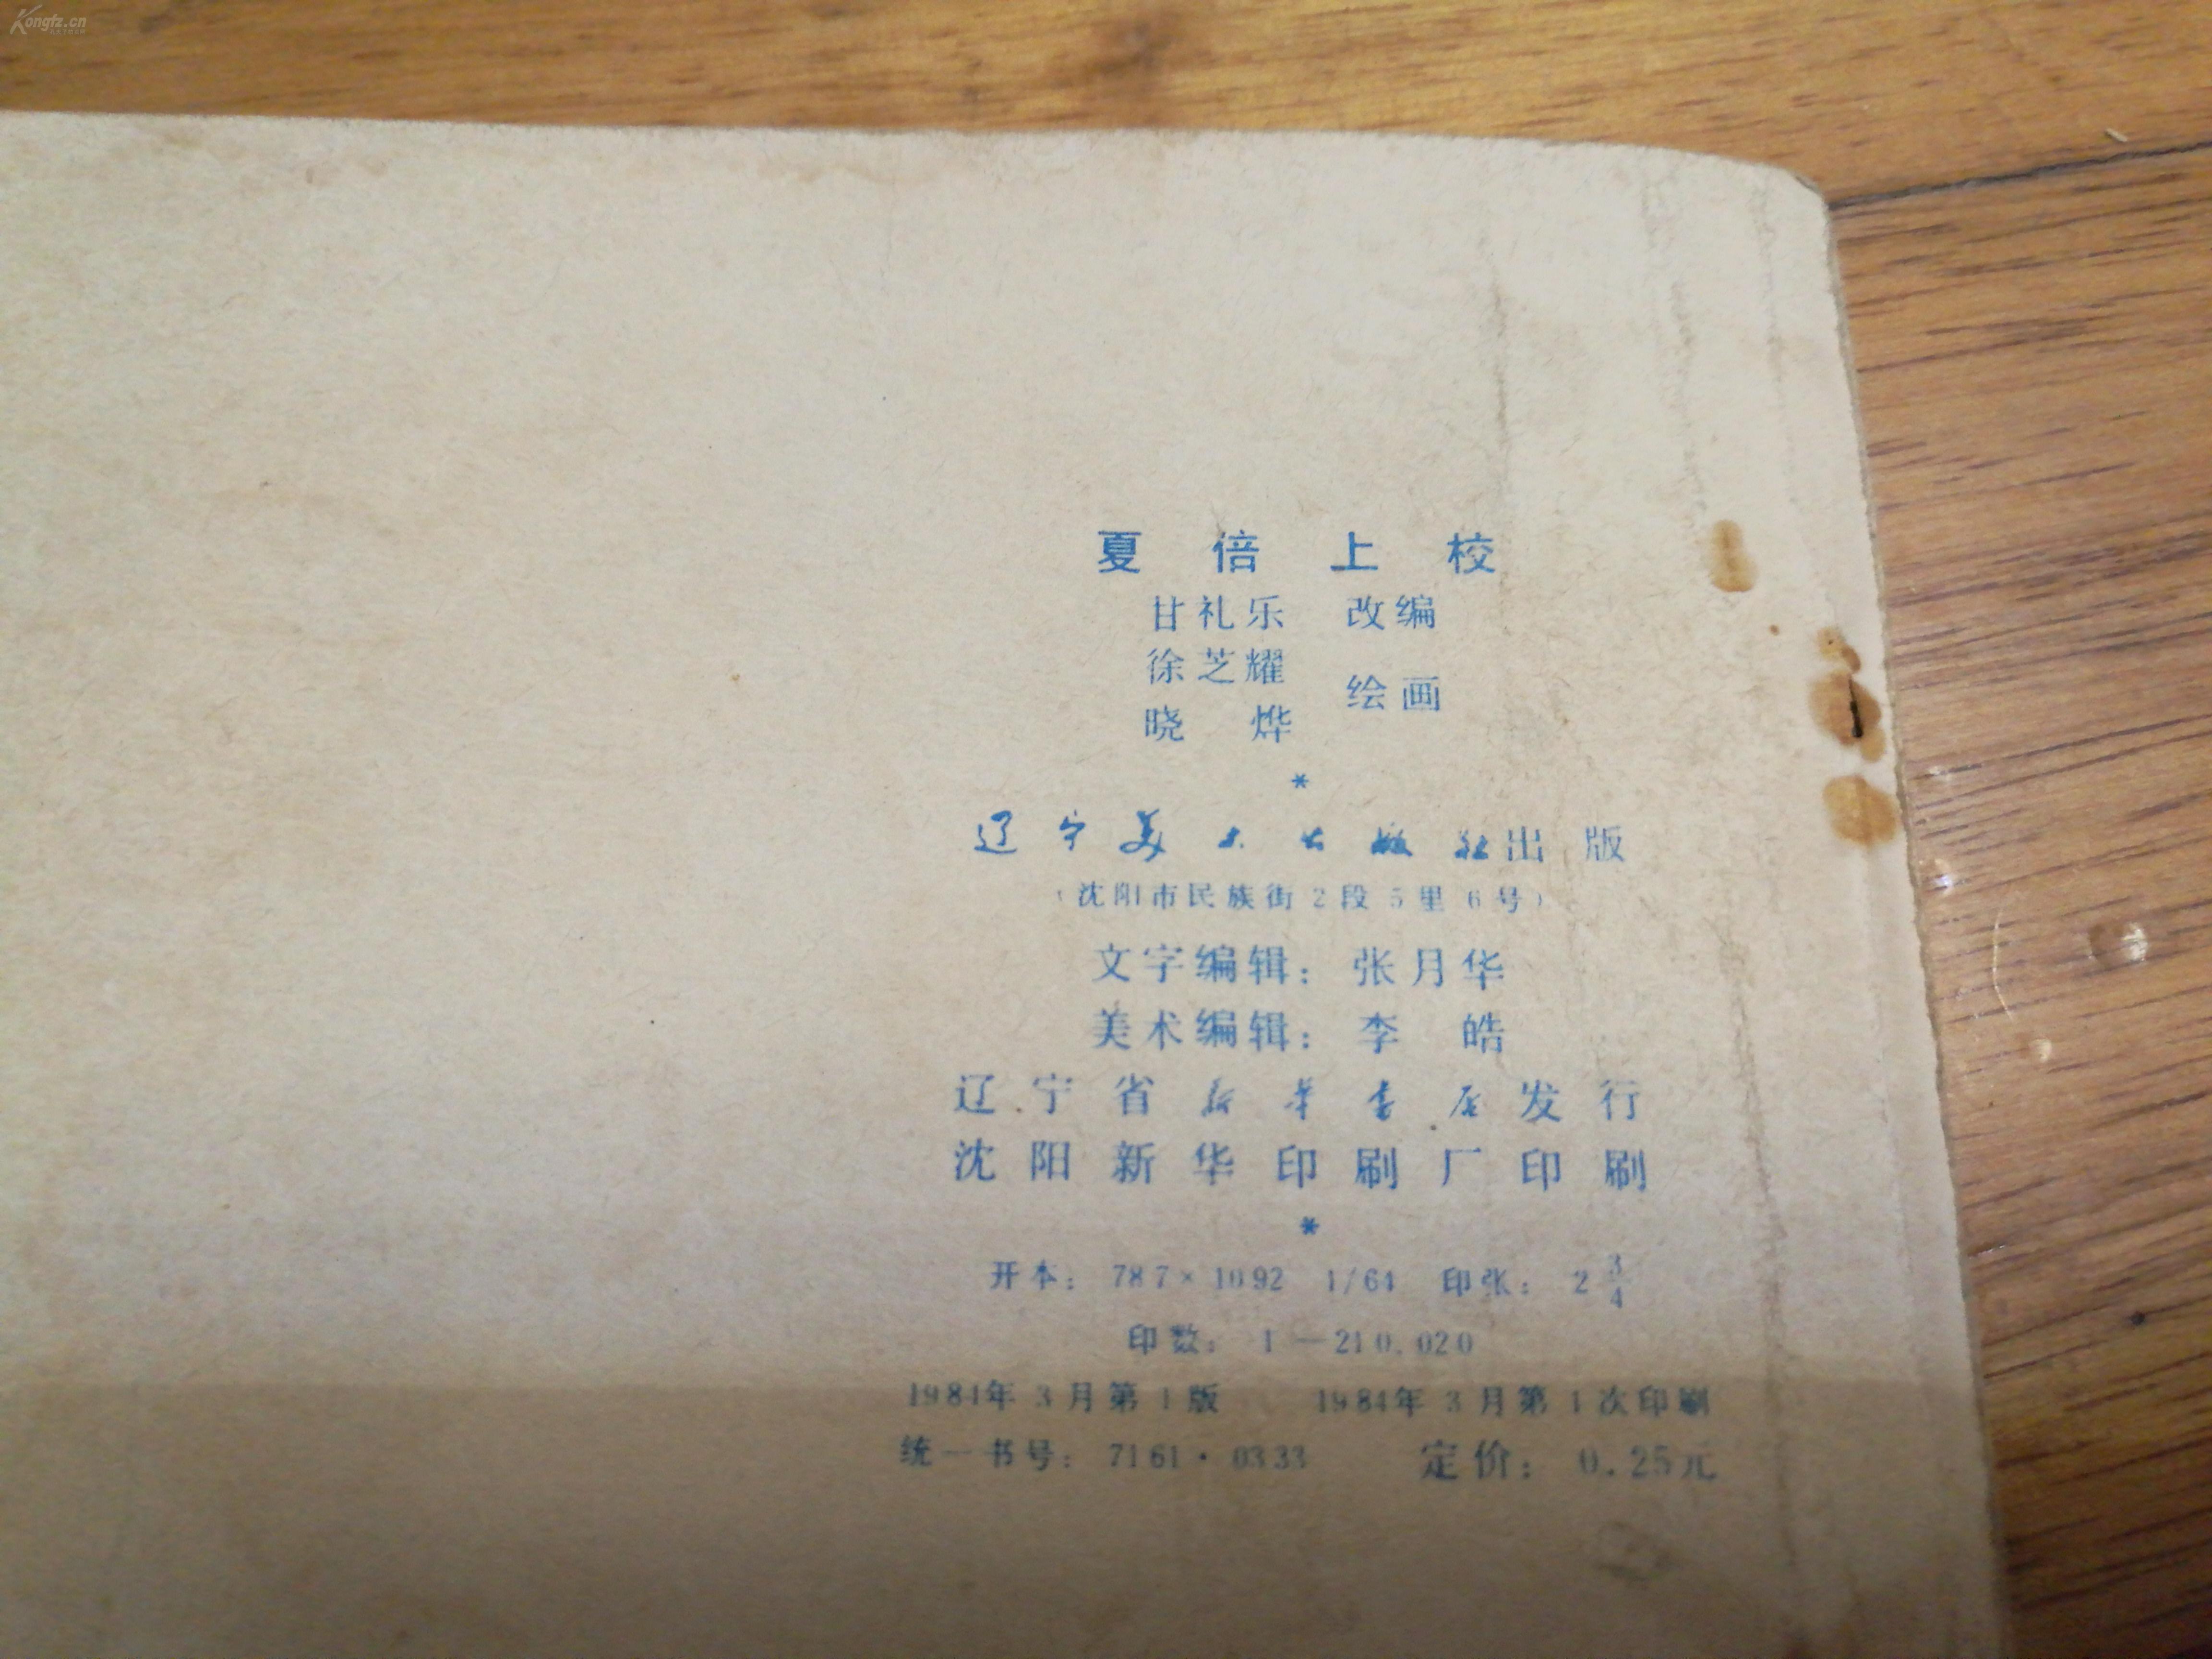 Kongfz.cn
夏倍上校
甘礼乐 改编
徐芝耀
晓烨 绘画
*
辽宁美术出版社出版
（沈阳市民族街2段5里6号）
文字编辑：张月华
美术编辑：李皓
辽宁省新华书店发行
沈阳新华印刷厂印刷
*
开本：787×1092 1/64 印张：2 3/4
印数：1—210,020
1984年3月第1版 1984年3月第1次印刷
统一书号：7161·0333 定价：0.25元